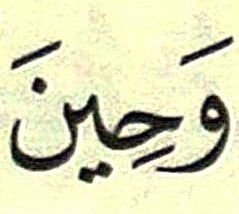 وَحِينَ